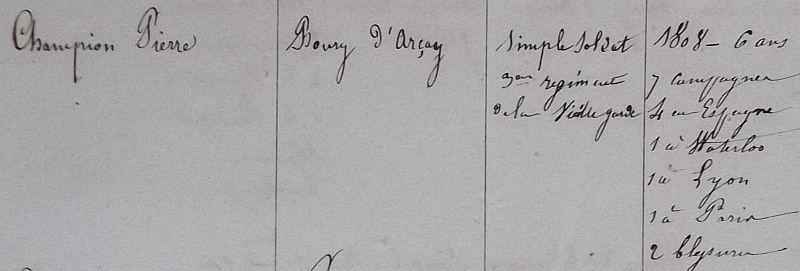 Champion Pierre
Boury d'Arçay
Simple Soldat
3me regiment
de la Vieille garde
1808 - 6 ans
7 campagnes
4 en Espagne
1 à Waterloo
1 à Lyon
1 à Paris
2 blessures